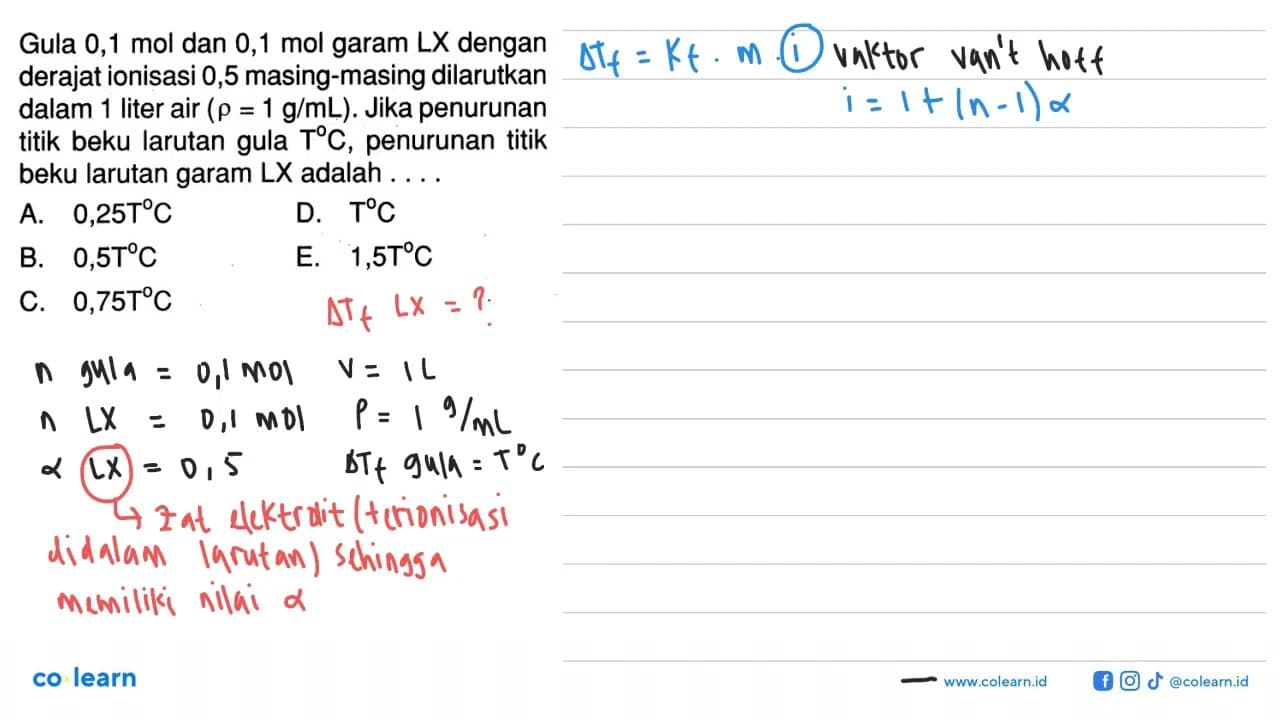 Gula 0,1 mol dan 0,1 mol garam LX dengan
derajat ionisasi 0,5 masing-masing dilarutkan
dalam 1 liter air (ρ = 1 g/mL). Jika penurunan
titik beku larutan gula T°C, penurunan titik
beku larutan garam LX adalah . . . .
A. 0,25T°C D. T°C
B. 0,5T°C E. 1,5T°C
C. 0,75T°C
ΔTf LX = ?
n gula = 0,1 mol V = 1 L
n LX = 0,1 mol ρ = 1 g/mL
α LX = 0,5 ΔTf gula = T°C
↳ zat elektrolit (terionisasi
didalam larutan) sehingga
memiliki nilai α
ΔTf = Kf . m . i vaktor van't hoff
i = 1 + (n - 1) α
co learn
www.colearn.id
@colearn.id